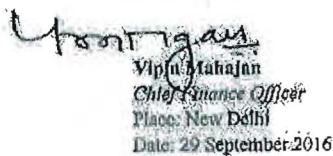 Vipin Mahajan
Chief Finance Officer
Place: New Delhi
Date: 29 September 2016